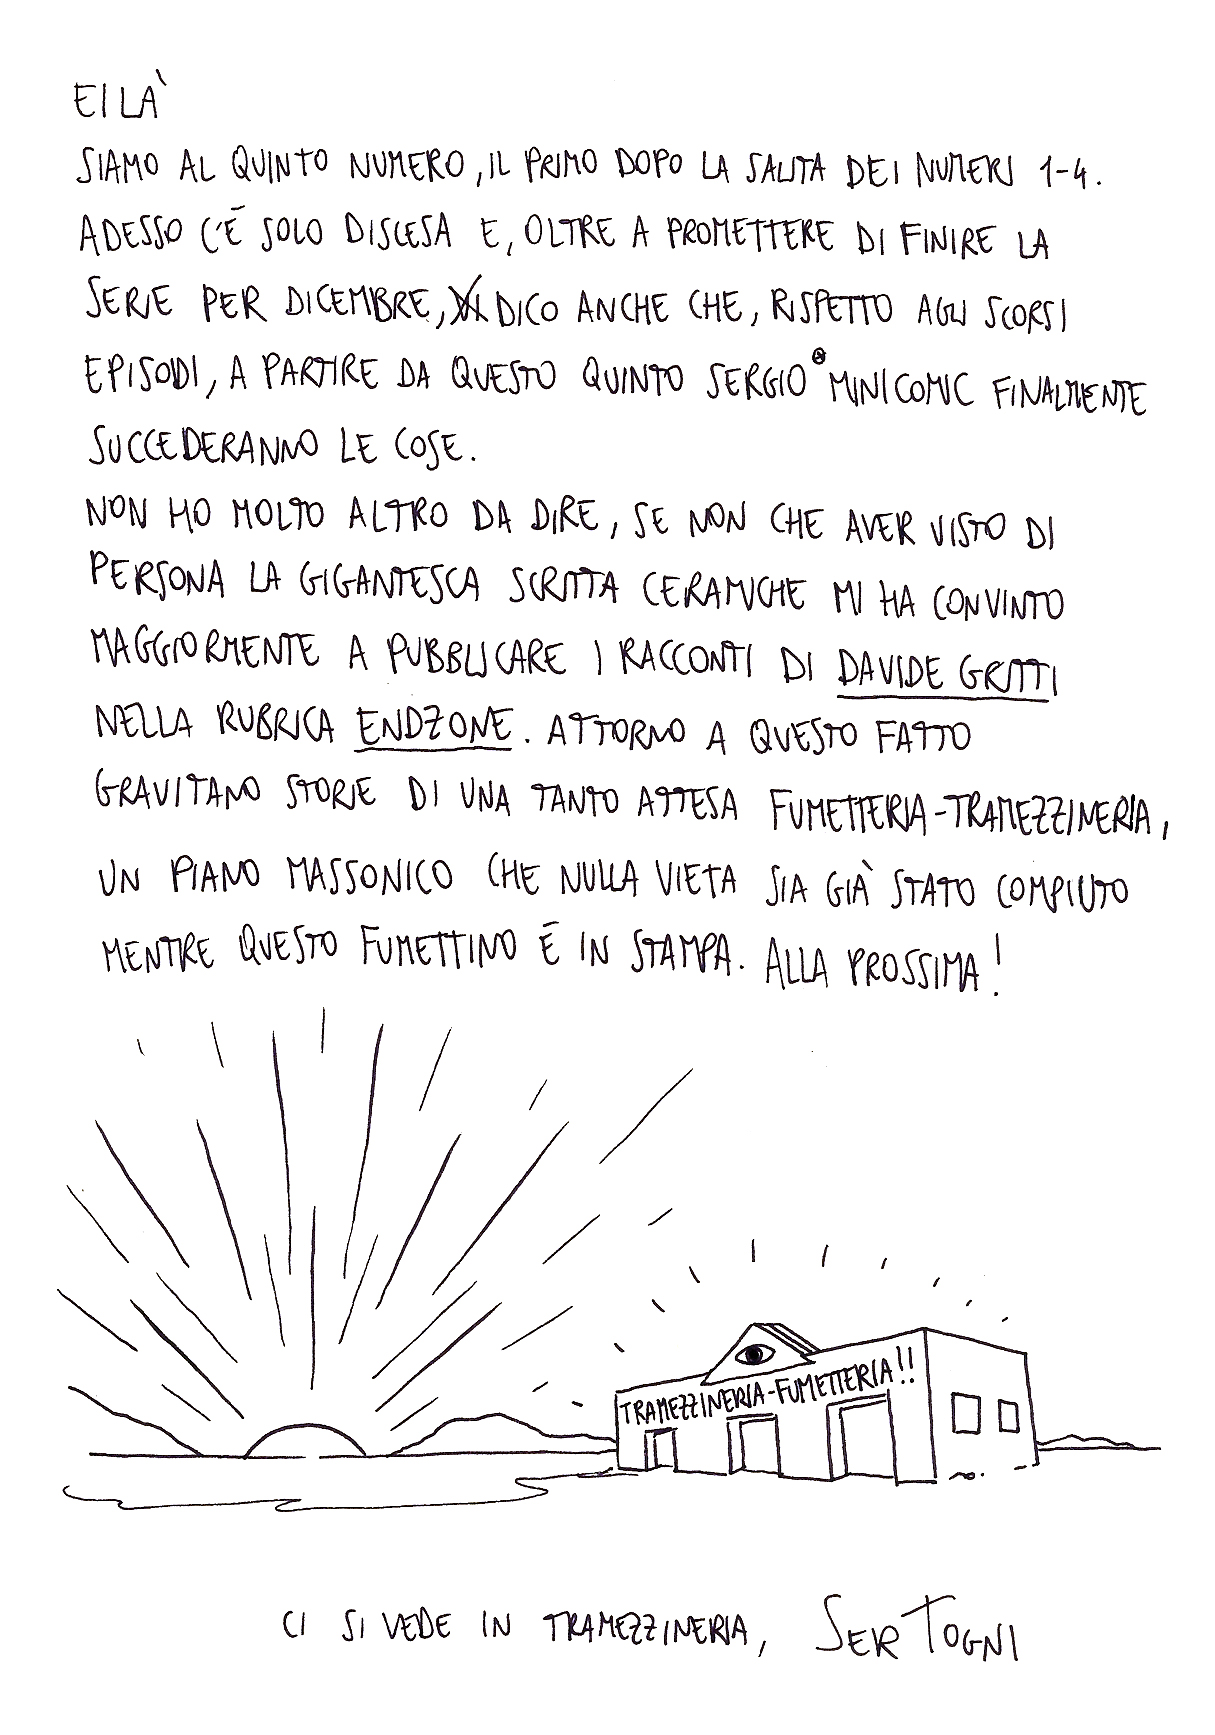 EILÀ
SIAMO AL QUINTO NUMERO, IL PRIMO DOPO LA SALITA DEI NUMERI 1-4.
ADESSO C'È SOLO DISCESA E, OLTRE A PROMETTERE DI FINIRE LA
SERIE PER DICEMBRE, DICO ANCHE CHE, RISPETTO AGLI SCORSI
EPISODI, A PARTIRE DA QUESTO QUINTO SERGIO MINICOMIC FINALMENTE
SUCCEDERANNO LE COSE.
NON HO MOLTO ALTRO DA DIRE, SE NON CHE AVER VISTO DI
PERSONA LA GIGANTESCA SCRITTA CERAMICHE MI HA CONVINTO
MAGGIORMENTE A PUBBLICARE I RACCONTI DI DAVIDE GRITTI
NELLA RUBRICA ENDZONE. ATTORNO A QUESTO FATTO
GRAVITANO STORIE DI UNA TANTO ATTESA FUMETTERIA-TRAMEZZINERIA,
UN PIANO MASSONICO CHE NULLA VIETA SIA GIÀ STATO COMPIUTO
MENTRE QUESTO FUMETTINO È IN STAMPA. ALLA PROSSIMA!
TRAMEZZINERIA-FUMETTERIA!!
CI SI VEDE IN TRAMEZZINERIA, SER TOGNI